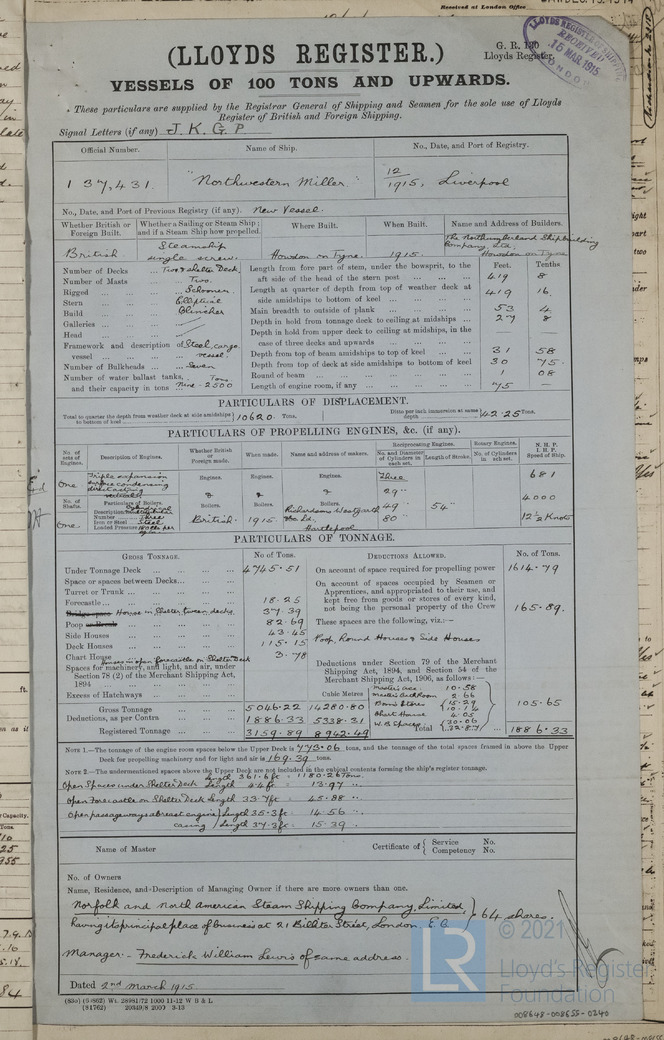 Received at London Office
(LLOYDS REGISTER.)
G. R. 130
Lloyds Register.
LLOYDS REGISTER
RECEIVED
15 MAR 1915
LONDON
VESSELS OF 100 TONS AND UPWARDS.
These particulars are supplied by the Registrar General of Shipping and Seamen for the sole use of Lloyds
Register of British and Foreign Shipping.
Signal Letters (if any) J. K. G. P
Official Number. Name of Ship. No., Date, and Port of Registry.
137,431. "Northwestern Miller" 12/1915, Liverpool
No., Date, and Port of Previous Registry (if any). New Vessel.
Whether British or Foreign Built. Whether a Sailing or Steam Ship; and if a Steam Ship how propelled. Where Built. When Built. Name and Address of Builders.
British Steamship single screw. Howdon on Tyne 1915. The Northumberland Shipbuilding Company, Ltd. Howdon on Tyne
Number of Decks ... Two & Shelter Deck
Number of Masts ... Two.
Rigged ... Schooner.
Stern ... Elliptical
Build ... Clincher
Galleries ...
Head ...
Framework and description of vessel ... Steel, cargo vessel.
Number of Bulkheads ... Seven
Number of water ballast tanks, and their capacity in tons ... Nine - 2500 Tons.
Feet. Tenths
Length from fore part of stem, under the bowsprit, to the aft side of the head of the stern post ... 419 8
Length at quarter of depth from top of weather deck at side amidships to bottom of keel ... 419 16
Main breadth to outside of plank ... 53 4
Depth in hold from tonnage deck to ceiling at midships ... 27 8
Depth in hold from upper deck to ceiling at midships, in the case of three decks and upwards ...
Depth from top of beam amidships to top of keel ... 31 58
Depth from top of deck at side amidships to bottom of keel ... 30 75
Round of beam ... 1 08
Length of engine room, if any ... 75 —
PARTICULARS OF DISPLACEMENT.
Total to quarter the depth from weather deck at side amidships to bottom of keel 10620 Tons. Ditto per inch immersion at same depth 42.25 Tons.
PARTICULARS OF PROPELLING ENGINES, &c. (if any).
No. of sets of Engines. Description of Engines. Whether British or Foreign made. When made. Name and address of makers. Reciprocating Engines. Rotary Engines. N. H. P. I. H. P. Speed of Ship.
No. and Diameter of Cylinders in each set. Length of Stroke. No. of Cylinders in each set.
One Triple expansion surface condensing direct acting vertical Engines. Engines. Engines. Three 681
No. of Shafts. Particulars of Boilers. & & & 29" 4000
Description Number Three Iron or Steel Steel Loaded Pressure 180 lbs per Boilers. Boilers. Boilers. 49" 54"
One. British. 1915 Richardsons Westgarth & Co Ld. Hartlepool 80" 12½ Knots
PARTICULARS OF TONNAGE.
GROSS TONNAGE. No. of Tons. DEDUCTIONS ALLOWED. No. of Tons.
Under Tonnage Deck ... 4745.51
Space or spaces between Decks ...
Turret or Trunk ...
Forecastle ... 18.25
House in Shelter tween decks. 37.39
Poop ... 82.69
Side Houses ... 43.45
Deck Houses ... 115.15
Chart House ... 3.78
Houses in open forecastle on Shelter Deck
Spaces for machinery, and light, and air, under Section 78 (2) of the Merchant Shipping Act, 1894
Excess of Hatchways ...
Cubic Metres
Gross Tonnage ... 5046.22 14280.80
Deductions, as per Contra ... 1886.33 5338.31
Registered Tonnage ... 3159.89 8942.49
On account of space required for propelling power 1614.79
On account of spaces occupied by Seamen or Apprentices, and appropriated to their use, and kept free from goods or stores of every kind, not being the personal property of the Crew 165.89.
These spaces are the following, viz.:—
Poop, Round Houses & Side Houses
Deductions under Section 79 of the Merchant Shipping Act, 1894, and Section 54 of the Merchant Shipping Act, 1906, as follows:—
10.58
2.66
Bosns Stores 15.29
10.14
Chart House 4.05
W. B. Spaces 30.06
32.87
105.65
Total ... 1886.33
NOTE 1.—The tonnage of the engine room spaces below the Upper Deck is 473.06 tons, and the tonnage of the total spaces framed in above the Upper
Deck for propelling machinery and for light and air is 169.39 tons.
NOTE 2.—The undermentioned spaces above the Upper Deck are not included in the cubical contents forming the ship's register tonnage.
Length 361.6 ft = 1180.26 Tons.
Open Spaces under Shelter Deck Length 4.4 ft = 13.97 "
Open Forecastle on Shelter Deck Length 33.7 ft = 45.88 "
Open passageways abreast engine Length 35.3 ft = 14.56 "
casing Length 37.3 ft = 15.39 "
Name of Master Certificate of { Service No. Competency No.
No. of Owners
Name, Residence, and Description of Managing Owner if there are more owners than one.
Norfolk and North American Steam Shipping Company, Limited,
having its principal place of business at 21 Billiter Street, London. E.C. } 64 shares.
Manager:- Frederick William Lewis of same address.
Dated 2nd March 1915.
(83o) (6/862) Wt. 28981/72 1000 11-12 W B & L
(81762) 20349(8 200) 3-13
LR
© 2021
Lloyd's Register
Foundation
008648-008655-0240